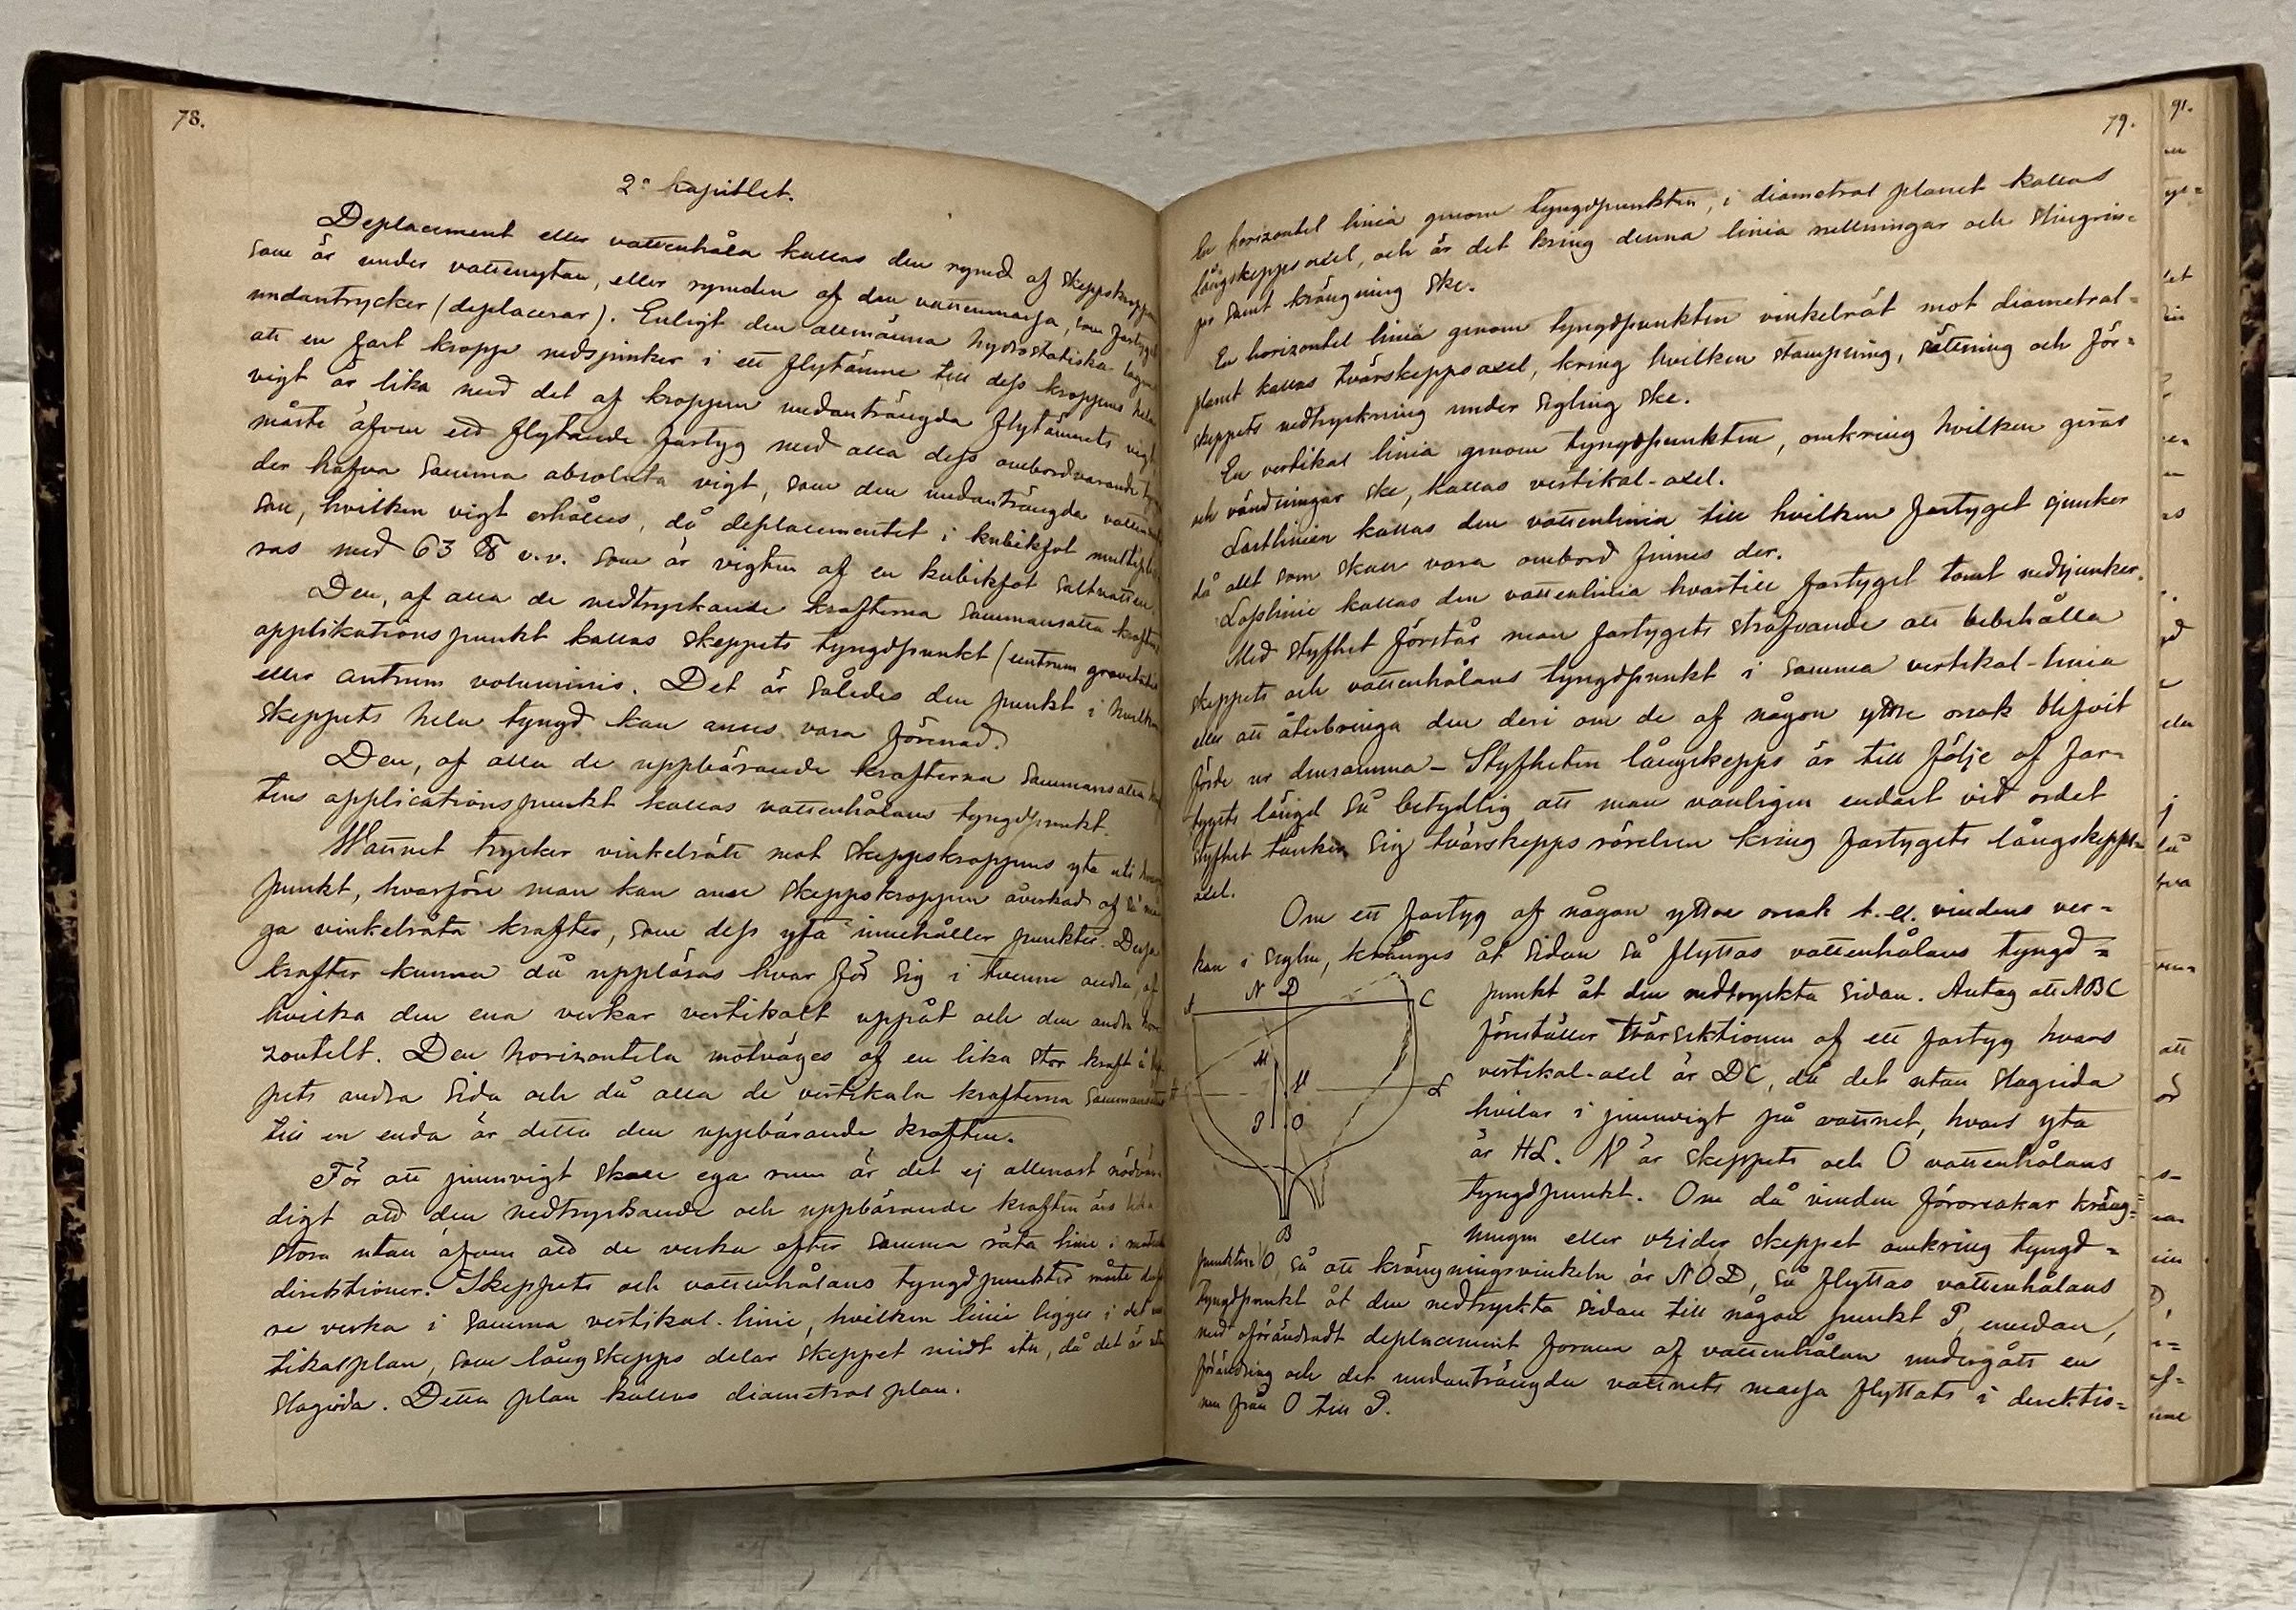 78.
2a kapitlet.
Deplacement eller vattenhåla kallas den rymd af skeppskroppen
som är under vattenytan, eller rymden af den vattenmassa, som fartyget
undantrycker (deplacerar). Enligt den allmänna hydrostatiska lagen
att en fast kropp nedsjunker i ett flytämne till dess kroppens hela
vigt är lika med det af kroppen undanträngda flytämnets vigt
måste äfven ett flytande fartyg med alla dess ombordvarande
der hafva samma absoluta vigt, som den undanträngda
san, hvilken vigt erhålles, då deplacementet i kubikfot multiplice
ras med 63 ℔ v.v. som är vigten af en kubikfot saltvatten.
Den, af alla de nedtryckande krafterna sammansatta kraftens
applikationspunkt kallas skeppets tyngdpunkt (centrum gravitatis
eller centrum voluminis. Det är således den punkt i hvilken
skeppets hela tyngd kan anses vara förenad.
Den, af alla de uppbärande krafterna sammansatta
tens applicationspunkt kallas vattenhålans tyngdpunkt.
Wattnet trycker vinkelrätt mot skeppskroppens yta uti
punkt, hvarföre man kan anse skeppskroppen åverkad af så mån
ga vinkelräta krafter, som dess yta innehåller punkter. Dessa
krafter kunna då upplösas hvar för sig i tvenne andra, af
hvilka den ena verkar vertikalt uppåt och den andra hori
zontelt. Den horizontela motväges af en lika stor kraft å
pets andra sida och då alla de vertikala krafterna sammansättas
till en enda är detta den uppbärande kraften.
För att jemnvigt skall ega rum är det ej allenast nödvän
digt att den nedtryckande och uppbärande kraften äro lika
stora utan äfven att de verka efter samma räta linie i motsatta
direktioner. Skeppets och vattenhålans tyngdpunkter måste
ra verka i samma vertikal-linie, hvilken linie ligger i det ver
tikalplan, som långskepps delar skeppet midt itu, då det är utan
slagsida. Detta plan kallas diametral plan.
79.
En horizontel linia genom tyngdpunkten, i diametral planet kallas
långskeppsaxel, och är det kring denna linia rullningar och slingrin=
gar samt krängning ske.
En horizontel linia genom tyngdpunkten vinkelrät mot diametral=
planet kallas tvärskeppsaxel, kring hvilken stampning, sättning och för=
skeppets nedtryckning under segling ske.
En vertikal linia genom tyngdpunkten, omkring hvilken girar
och vändningar ske, kallas vertikal-axel.
Lastlinien kallas den vattenlinia till hvilken fartyget sjunker
då allt som skall vara ombord finnes der.
Losslinie kallas den vattenlinia hvartill fartyget tomt nedsjunker.
Med styfhet förstår man fartygets sträfvande att bibehålla
skeppets och vattenhålans tyngdpunkt i samma vertikal-linia
eller att återbringa den deri om de af någon yttre orsak blifvit
förde ur densamma – Styfheten långskepps är till följe af far=
tygets längd så betydlig att man vanligen endast vid ordet
styfhet tänker sig tvärskepps rörelsen kring fartygets långskepps=
axel.
Om ett fartyg af någon yttre orsak t.ex. vindens ver=
kan i seglen, kränges åt sidan så flyttas vattenhålans tyngd=
punkt åt den nedtryckta sidan. Antag att ABC
föreställer tvärsektionen af ett fartyg hvars
vertikal-axel är DC, då det utan slagsida
hvilar i jemnvigt på vattnet, hvars yta
är HL. N är skeppets och O vattenhålans
tyngdpunkt. Om då vinden förorsakar kräng=
ningen eller vrider skeppet omkring tyngd=
punkten O, så att krängningsvinkeln är NOD, så flyttas vattenhålans
tyngdpunkt åt den nedtryckta sidan till någon punkt P, emedan,
med oförändradt deplacement formen af vattenhålan undergått en
förändring och det undanträngda vattnets massa flyttats i direktio=
nen från O till P.
A N D C
M
L
O
B
91.